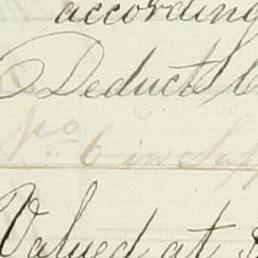 according
Deduct
No 6 in Sup
Valued at